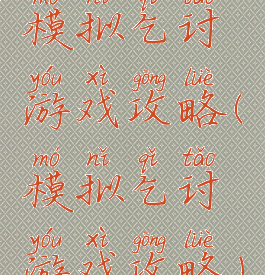 mó nǐ qǐ tǎo
模拟乞讨
yóu xì gōng lüè
游戏攻略(
mó nǐ qǐ tǎo
模拟乞讨
yóu xì gōng lüè
游戏攻略)